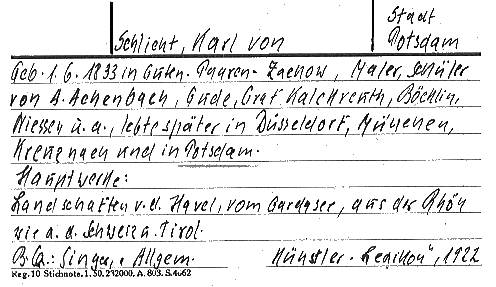 Stadt
Schlicht, Karl von Potsdam
Geb. 1. 6. 1833 in Guten-Paaren-Zachow, Maler, Schüler
von A. Achenbach, Gude, Graf Kalckreuth, Böcklin,
Niessen u. a., lebte später in Düsseldorf, München,
Kreuznach und in Potsdam.
Hauptwerke:
Landschaften v. d. Havel, vom Gardasee, aus der Rhön
wie a. d. Schweiz u. Tirol.
B. Qu.: Singer, Allgem. Künstler-Lexikon", 1922
Reg. 10 Stichnote. 1. 50. 232000. A. 803. S. 4062